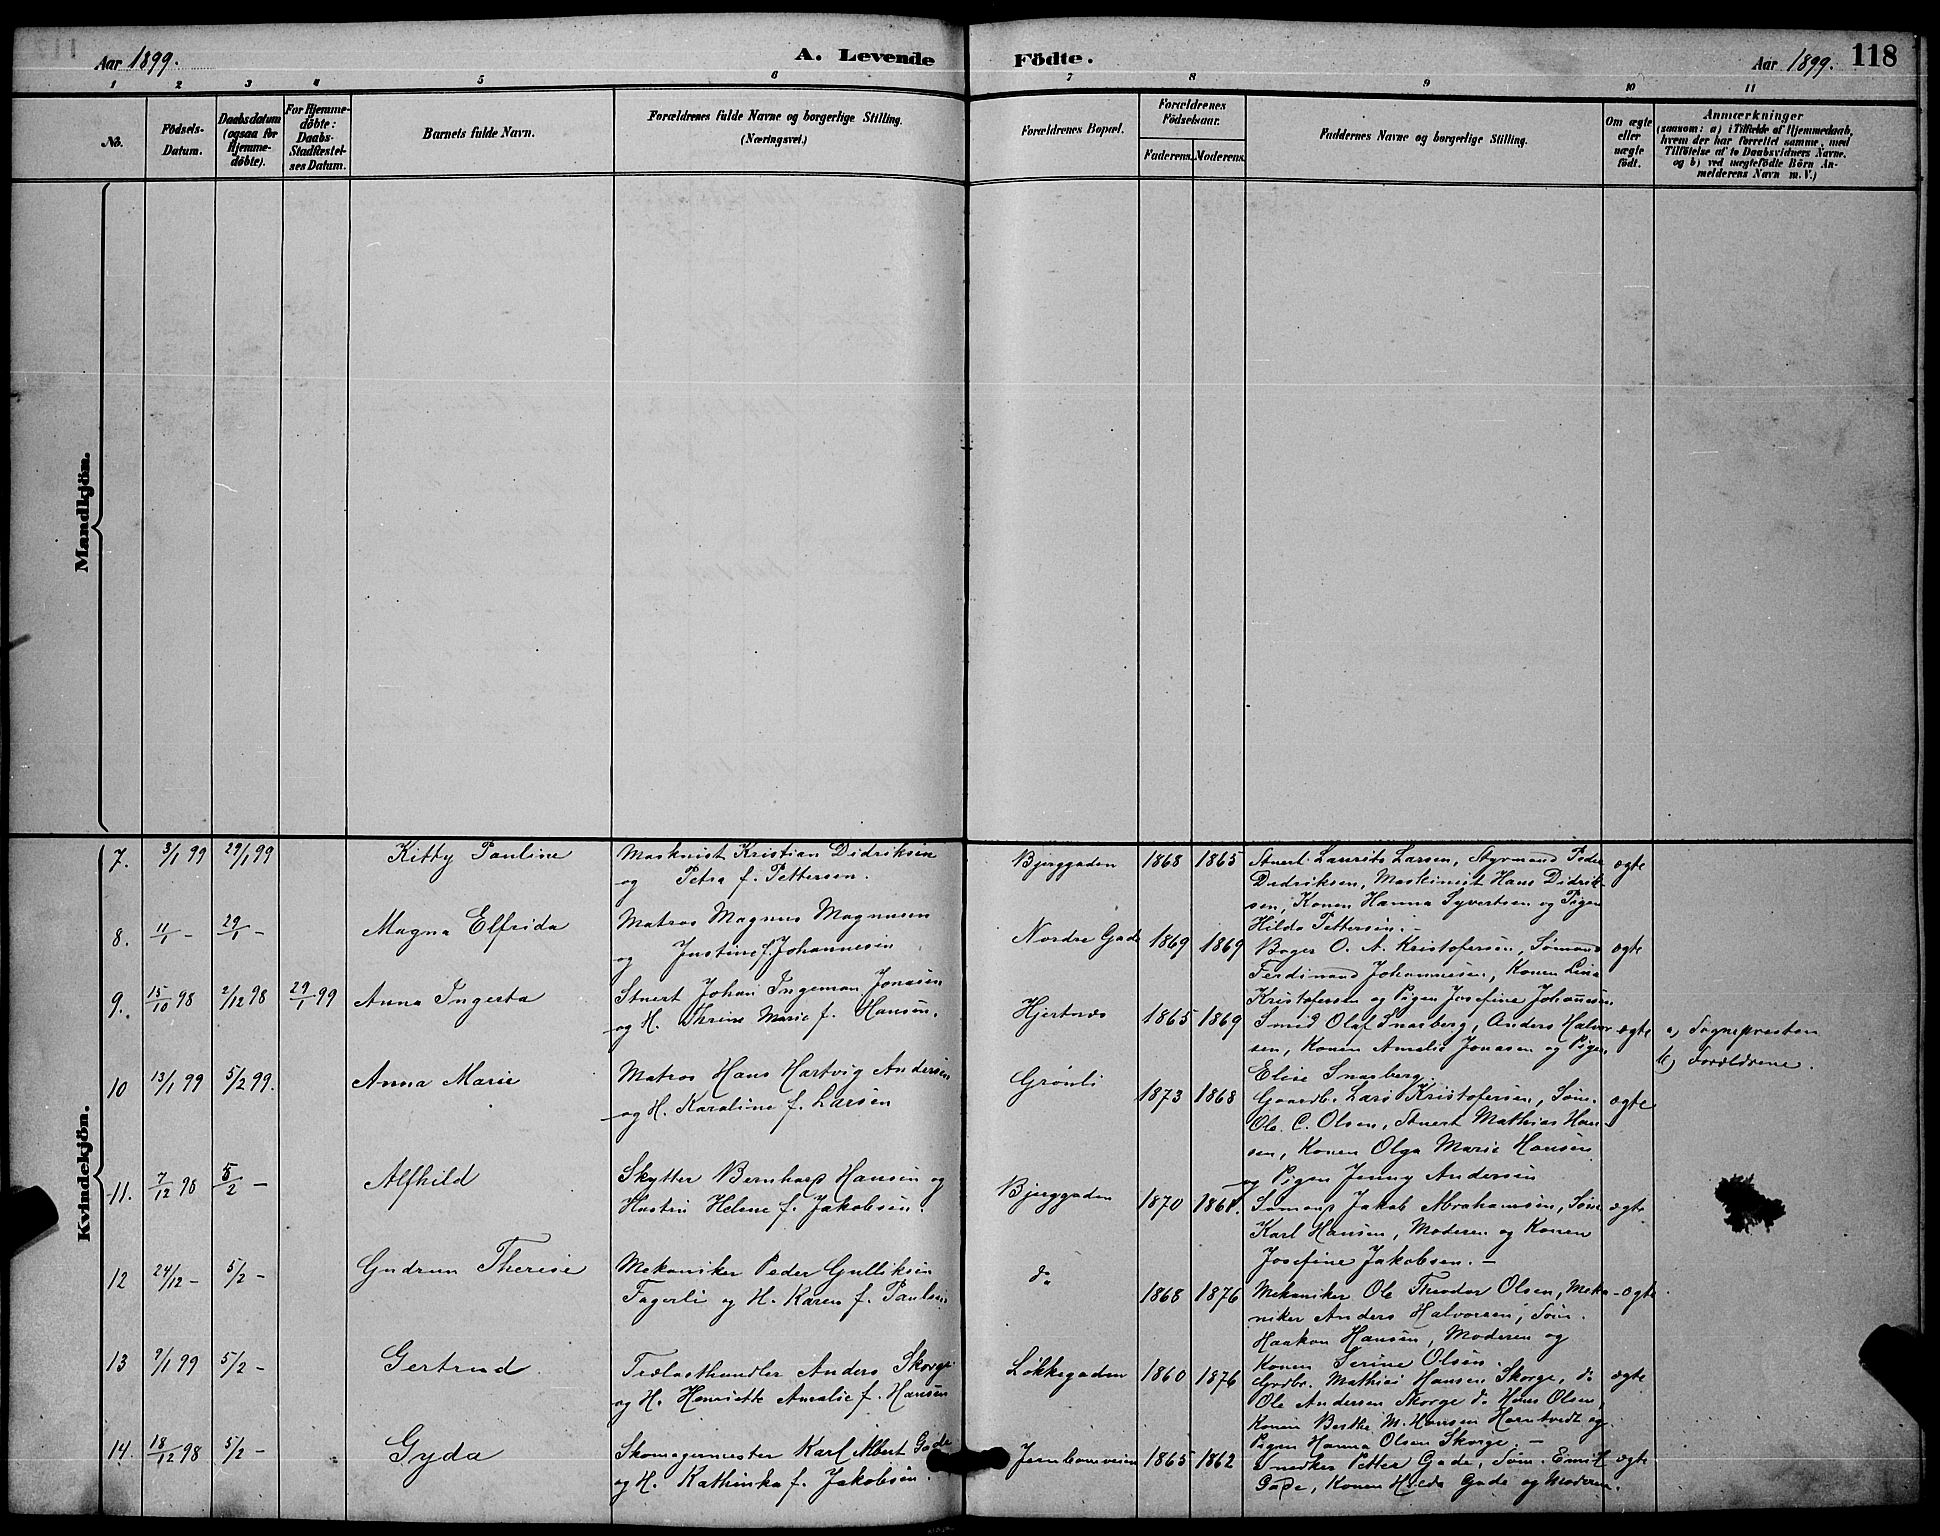 Aar 1899.
A. Levende Födte.
Aar 1899. 118
1 2 3 4 5 6 7 8 9 10 11
No.
Födsels-
Datum.
Daabsdatum
(ogsaa for
Hjemme-
döbte).
For Hjemme-
döbte:
Daabs-
Stadfæstel-
ses Datum.
Barnets fulde Navn.
Forældrenes fulde Navne og borgerlige Stilling.
(Næringsvei.)
Forældrenes Bopæl.
Forældrenes
Födselsaar.
Faderens. Moderens.
Faddernes Navne og borgerlige Stilling.
Om ægte
eller
uægte
födt.
Anmærkninger
(saasom: a) i Tilfælde af Hjemmedaab,
hvem der har forrettet samme, med
Tilföielse af to Daabsvidners Navne,
og b) ved uægtefödte Börn An-
melderens Navn m. V.)
Mandkjön.
Kvindekjön.
7. 3/1 99 29/1 99 Kitty Pauline
Maskinist Kristian Didriksen
og Petra f. Pettersen.
Bjerggaden 1868 1865
Stuert Laurits Larsen, Styrmand Peder
Didriksen, Maskinist Hans Didrik-
sen, Konen Hanna Syvertsen og Pigen
Hilda Pettersen.-
ægte
8. 11/1 - 29/1 - Magna Elfrida
Matros Magnus Magnusen
og Justine f. Johannesen
Nordre Gade 1869 1869
Bager O. A. Kristofersen, Sömand
Ferdinand Johannesen, Konen Lina
Kristofersen og Pigen Josefine Johansen
ægte
9. 15/10 98 2/12 98 29/1 99 Anna Ingerta
Stuert Johan Ingeman Jonasen
og H. Thrine Marie f. Hansen.
Hjertnæs 1865 1869
Smed Olaf Snarberg, Anders Halvor-
sen, Konen Amalie Jonasen og Pigen
Elise Snarberg.
ægte
a) Sognepresten
b) Forældrene.
10 13/1 99 5/2 99. Anna Marie
Matros Hans Hartvig Andersen
og H. Karoline f. Larsen
Grönli 1873 1868
Gaardbr. Lars Kristofersen, Söm.
Ole C. Olsen, Stuert Mathias Han-
sen, Konen Olga Marie Hansen
og Pigen Jenny Andersen
ægte
11. 7/12 98 5/2 - Alfhild
Skytter Bernhard Hansen og
Hustru Helene f. Jakobsen.
Bjerggaden 1870
Sömand Jakob Abrahamsen, Söm
Karl Hansen, Moderen og Konen
Josefine Jakobsen. -
ægte
12 24/12 - 5/2 - Gudrun Therese
Mekaniker Peder Gulliksen
Fagerli og H. Karen f. Paulsen
do 1868 1876
Mekaniker Ole Theodor Olsen, Meka-
niker Anders Halvorsen, Söm.
Haakon Hansen, Moderen og
Konen Serine Olsen.
ægte
13 9/1 99 5/2 - Gertrud
Trælasthandler Anders Skorge
og H. Henriette Amalie f. Hansen
Løkkegaden 1860 1876
Grdbr. Mathias Hansen Skorge, do
Ole Andersen Skorge do Hans Olsen,
Konen Berthe M. Hansen Horntvedt og
Pigen Hanna Olsen Skorge. -
ægte
14. 18/12 98 5/2 - Gyda
Skomagermester Karl Albert Gade
og H. Kathinka f. Jakobsen.
Jernbaneveien 1865 1862
Snedker Petter Gade, Söm. Emil
Gade, Konen Hilda Gade og Moderen.
ægte